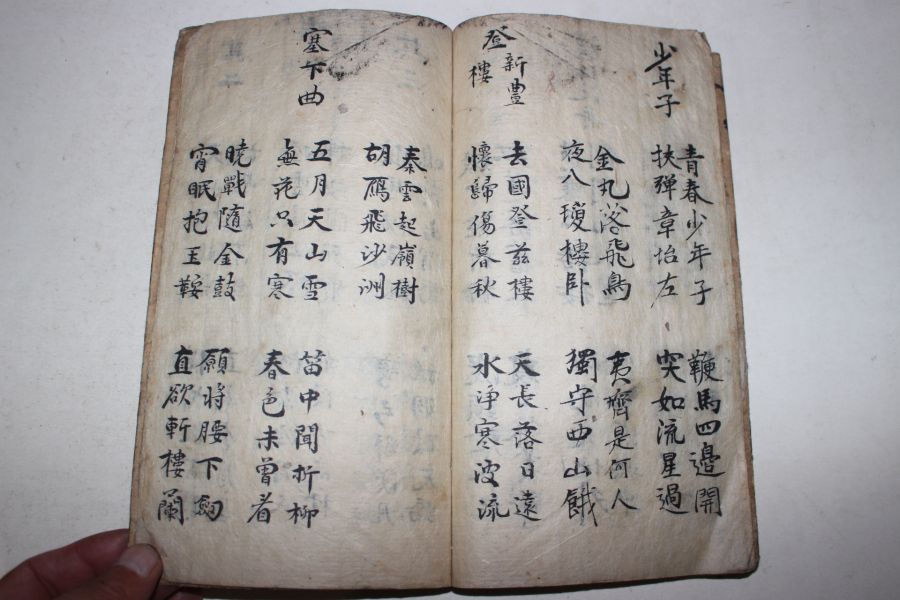 少年子
青春少年子
扶彈章怡左
鞭馬四邊開
突如流星過
金丸落飛鳥
夜八瓊樓卧
夷齊是何人
獨守西山餓
登新豊樓
去國登茲樓
懷歸傷暮秋
天長落日遠
水淨寒波流
秦雲起嶺樹
胡鴈飛沙洲
塞下曲
五月天山雪
無花只有寒
笛中聞折柳
春色未曾看
曉戰隨金鼓
宵眠抱玉鞍
願將腰下劒
直欲斬樓蘭